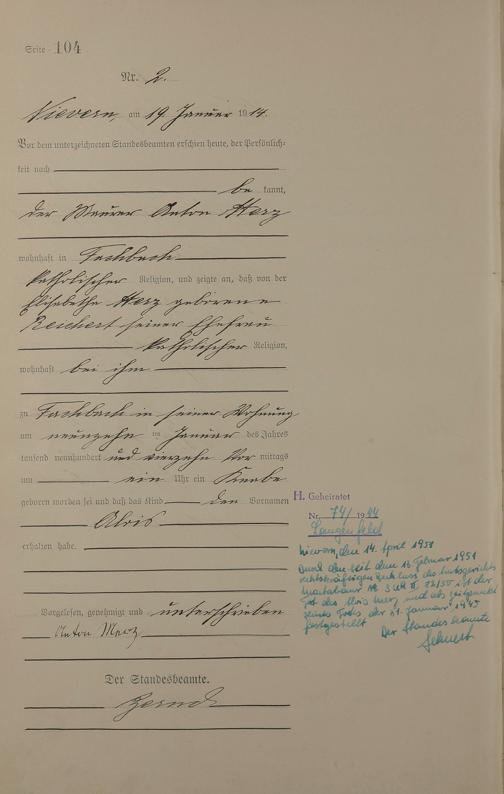 Seite 104
Nr. 2.
Nievern, am 19. Januar 1914.
Vor dem unterzeichneten Standesbeamten erschien heute, der Persönlich-
keit nach
be kannt,
der Maurer Anton
wohnhaft in Fachbach
katholischer Religion, und zeigte an, daß von der
Elisabetha geborene
Reichert seiner Ehefrau
katholischer Religion,
wohnhaft bei ihm
zu Fachbach in seiner Wohnung
am neunzehn im Januar des Jahres
tausend neunhundert und vierzehn Vor mittags
um ein Uhr ein Knabe
geboren worden sei und daß das Kind den Vornamen
Alois
erhalten habe.
Vorgelesen, genehmigt und unterschrieben
Anton
Der Standesbeamte.
H. Geheiratet
Nr. 74/1944
Langenfeld
Nievern, den 14. April 1951
Durch den seit dem 13. Februar 1951
rechtskräftigen Beschluss des Amtsgerichts
Montabaur ist der
Tod des Alois und als Zeitpunkt
seines Todes der 31. Januar 1945
festgestellt
Der Standesbeamte